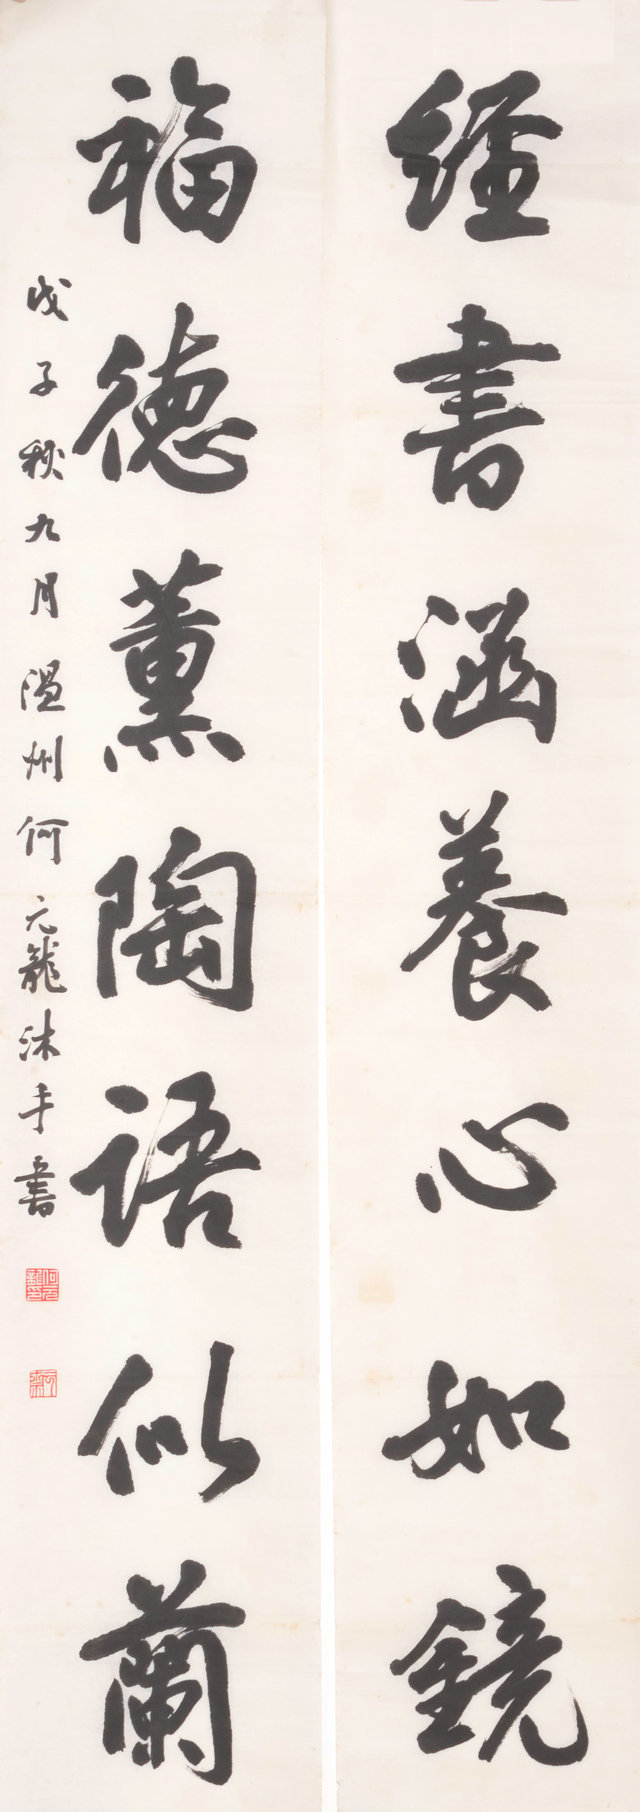 經書涵養心如鏡
福德薰陶語似蘭
戊子秋九月溫州何元龍沐手書